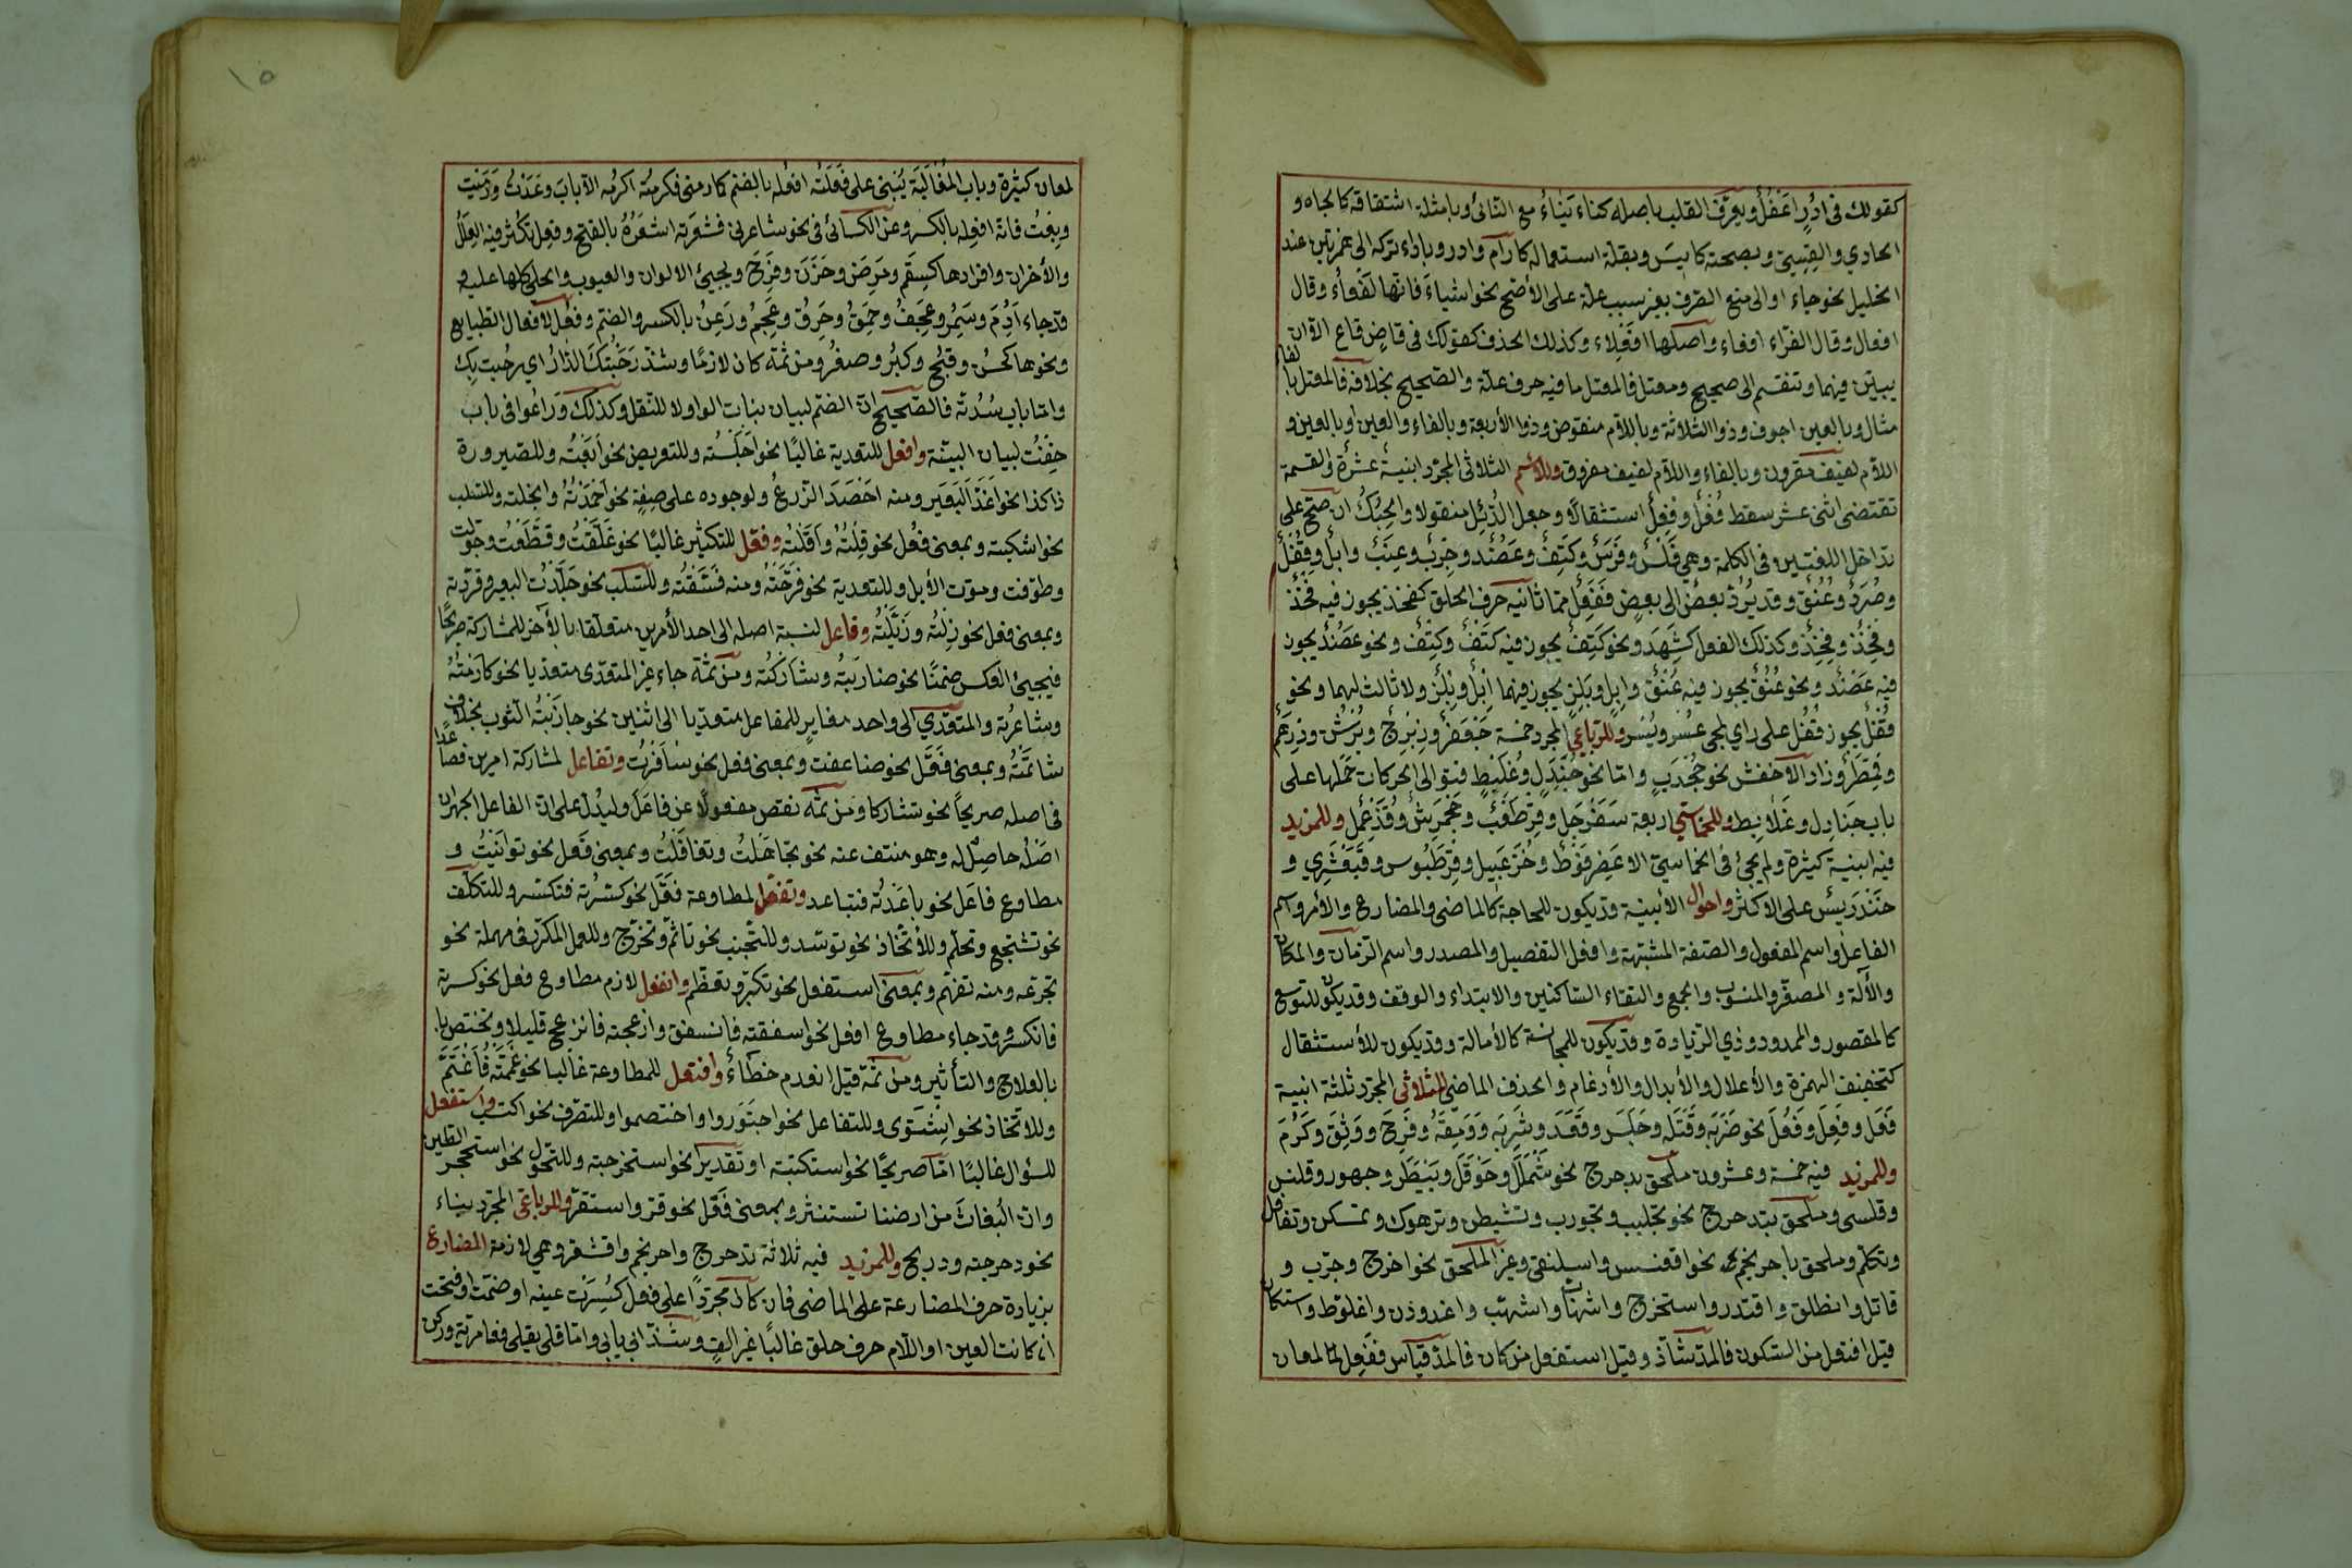 كقولك فى ادؤر اعفل ويعرف القلب باصله كناء يناء مع النائى وبامثلة اشتقاقه كالجاه و
الحادي والقسي وبصحته كايس وبقلة استعماله كارام وادر وباداء تركه الى همزتين عند
الخليل نحو جاء او الى منع الصرف بغير سبب علة على الأصح نحو اشياء فانها لفعاء وقال
افعال وقال الفراء افعاء واصلها افعلاء وكذلك الحذف كقولك فى قاض قاع الا ان
يبين فيهما وتنقسم الى صحيح ومعتل فالمعتل ما فيه حرف علة والصحيح بخلافه فالمعتل بالفاء
مثال وبالعين اجوف وذو الثلاثة وباللام منقوص وذو الأربعة وبالفاء والعين او بالعين و
اللام لفيف مقرون وبالفاء واللام لفيف مفروق وللاسم الثلاثى المجرد ابنية عشرة والقسمة
تقتضى اثنى عشر سقط فُعِل وفِعُل استثقالا وجعل الدئل منقولا والحبك ان صح على
تداخل اللغتين فى الكلمة وهى فلس وفرس وكتف وعضد وحبر وعنب وابل وقفل
وصرد وعنق وقد يرد بعض الى بعض ففعل مما ثانيه حرف الحلق كفخذ يجوز فيه فخذ
وفخذ وفخذ وكذلك الفعل كشهد ونحو كتف يجوز فيه كتف وكتف ونحو عضد يجوز
فيه عضد ونحو عنق يجوز فيه عنق وابل وبلز يجوز فيهما ابل وبلز ولا ثالث لهما ونحو
قفل يجوز قفل على راي لمجى عسر ويسر وللرباعي المجرد خمسة جعفر وزبرج وبرثن ودرهم
وقمطر وزاد الاخفش نحو جخدب واما نحو جندل وعلبط فتوالى الحركات حملها على
باب جنادل وعلابط وللخماسي اربعة سفرجل وقرطعب وجحمرش وقذعمل وللمزيد
فيه ابنية كثيرة ولم يجئ فى الخماسى الا عضرفوط وخزعبيل وقرطبوس وقبعثري و
خندريس على الاكثر واحوال الأبنية قد يكون للحاجة كالماضى والمضارع والأمر واسم
الفاعل واسم المفعول والصفة المشبهة وافعل التفضيل والمصدر واسم الزمان والمكان
والآلة والمصغر والمنسوب والجمع والتقاء الساكنين والابتداء والوقف وقد يكون للتوسع
كالمقصور والممدود وذي الزيادة وقد يكون للمجانسة كالأمالة وقد يكون للأستثقال
كتخفيف الهمزة والأعلال والأبدال والأدغام والحذف الماضى للثلاثى المجرد ثلثة ابنية
فعل وفعل وفعل نحو ضربه وقتله وجلس وقعد وشربه وومقه وفرح ووثق وكرم
وللمزيد فيه خمسة وعشرون ملحق بدحرج نحو شملل وحوقل وبيطر وجهور وقلنس
وقلسى وملحق بتدحرج نحو تجلبب وتجورب وتشيطن وترهوك وتمسكن وتغافل
وتكلم وملحق باحرنجم نحو اقعنسس واسلنقى وغير الملحق نحو اخرج وجرب و
قاتل وانطلق واقتدر واستخرج واشهاب واشهب واغدودن واعلوط واستكان
قيل افتعل من السكون فالمد شاذ وقيل استفعل من كان فالمد قياس ففعل لمعان
لمعان كثيرة وباب المغالبة يبنى على فعلته افعله بالضم نحو كارمنى فكرمته اكرمه الا باب وعدت ورميت
وبعت فانه افعله بالكسر وعن الكسائى فى نحو شاعرنى فشعرته اشعره بالفتح وفعل تكثر فيه العلل
والأحزان واضدادها كسقم ومرض وحزن وفرح ويجيئ الالوان والعيوب والحلى كلها عليه و
قد جاء ادم وسمر وعجف وحمق وخرق وعجم ورعن بالكسر والضم وفعل لافعال الطبايع
ونحوها كحسن وقبح وكبر وصغر ومن ثمة كان لازما وشذ رحبتك الدار اي رحبت بك
واما باب سدته فالصحيح ان الضم لبيان بنات الواو لا للنقل وكذلك وراعوا فى باب
خفت لبيان البنية وافعل للتعدية غالبا نحو اجلسته وللتعريض نحو ابعته وللصيرورة
ذا كذا نحو اغد البعير ومنه احصد الزرع ولوجوده على صفة نحو احمدته وابخلته وللسلب
نحو اشكيته وبمعنى فعل نحو قلته واقلته وفعل للتكثير غالبا نحو غلقت وقطعت وجولت
وطوفت وموت الأبل وللتعدية نحو فرحته ومنه فسقته وللسلب نحو جلدت البعير وقردته
وبمعنى فعل نحو زلته وزيلته وفاعل لنسبة اصله الى احد الأمرين متعلقا بالآخر للمشاركة صريحا
فيجيئ العكس ضمنا نحو ضاربته وشاركته ومن ثمة جاء غير المتعدى متعديا نحو كارمته
وشاعرته والمتعدي الى واحد مغاير للمفاعل متعديا الى اثنين نحو جاذبته الثوب بخلاف
شاتمته وبمعنى فعل نحو ضاعفت وبمعنى فعل نحو سافرت وتفاعل لمشاركة امرين فصاعدا
فى اصله صريحا نحو تشاركا ومن ثمه نقص مفعولا عن فاعل وليدل على ان الفاعل اظهر ان
اصله حاصل له وهو منتف عنه نحو تجاهلت وتغافلت وبمعنى فعل نحو توانيت و
مطاوع فاعل نحو باعدته فتباعد وتفعل لمطاوعة فعل نحو كسرته فتكسر وللتكلف
نحو تشجع وتحلم وللأتخاذ نحو توسد وللتجنب نحو تأثم وتحرج وللعمل المكرر فى مهملة نحو
تجرعه ومنه تفهم وبمعنى استفعل نحو تكبر وتعظم وانفعل لازم مطاوع فعل نحو كسرته
فانكسر وقد جاء مطاوع افعل نحو اسفقته فانسفق وازعجته فانزعج قليلا ويختص با
بالعلاج والتأثير ومن ثمة قيل انعدم خطاء وافتعل للمطاوعة غالبا نحو غممته فاغتم
وللاتخاذ نحو اشتوى وللتفاعل نحو اجتوروا واختصموا وللتصرف نحو اكتسب واستفعل
للسؤال غالبا اما صريحا نحو استكتبته او تقديرا نحو استخرجته وللتحول نحو استحجر الطين
وان البغاث من ارضنا تستنسر وبمعنى فعل نحو قر واستقر وللرباعى المجرد بناء
نحو دحرجته ودربخ وللمزيد فيه ثلاثة تدحرج واحرنجم واقشعر وهي لازمة المضارع
بزيادة حرف المضارعة على الماضى فان كان مجردا على فعل كسرت عينه او ضمت او فتحت
ان كانت العين او اللام حرف حلق غالبا غير الف وشذ ابى يابى واما قلى يقلى فعامرية وركن
١٥